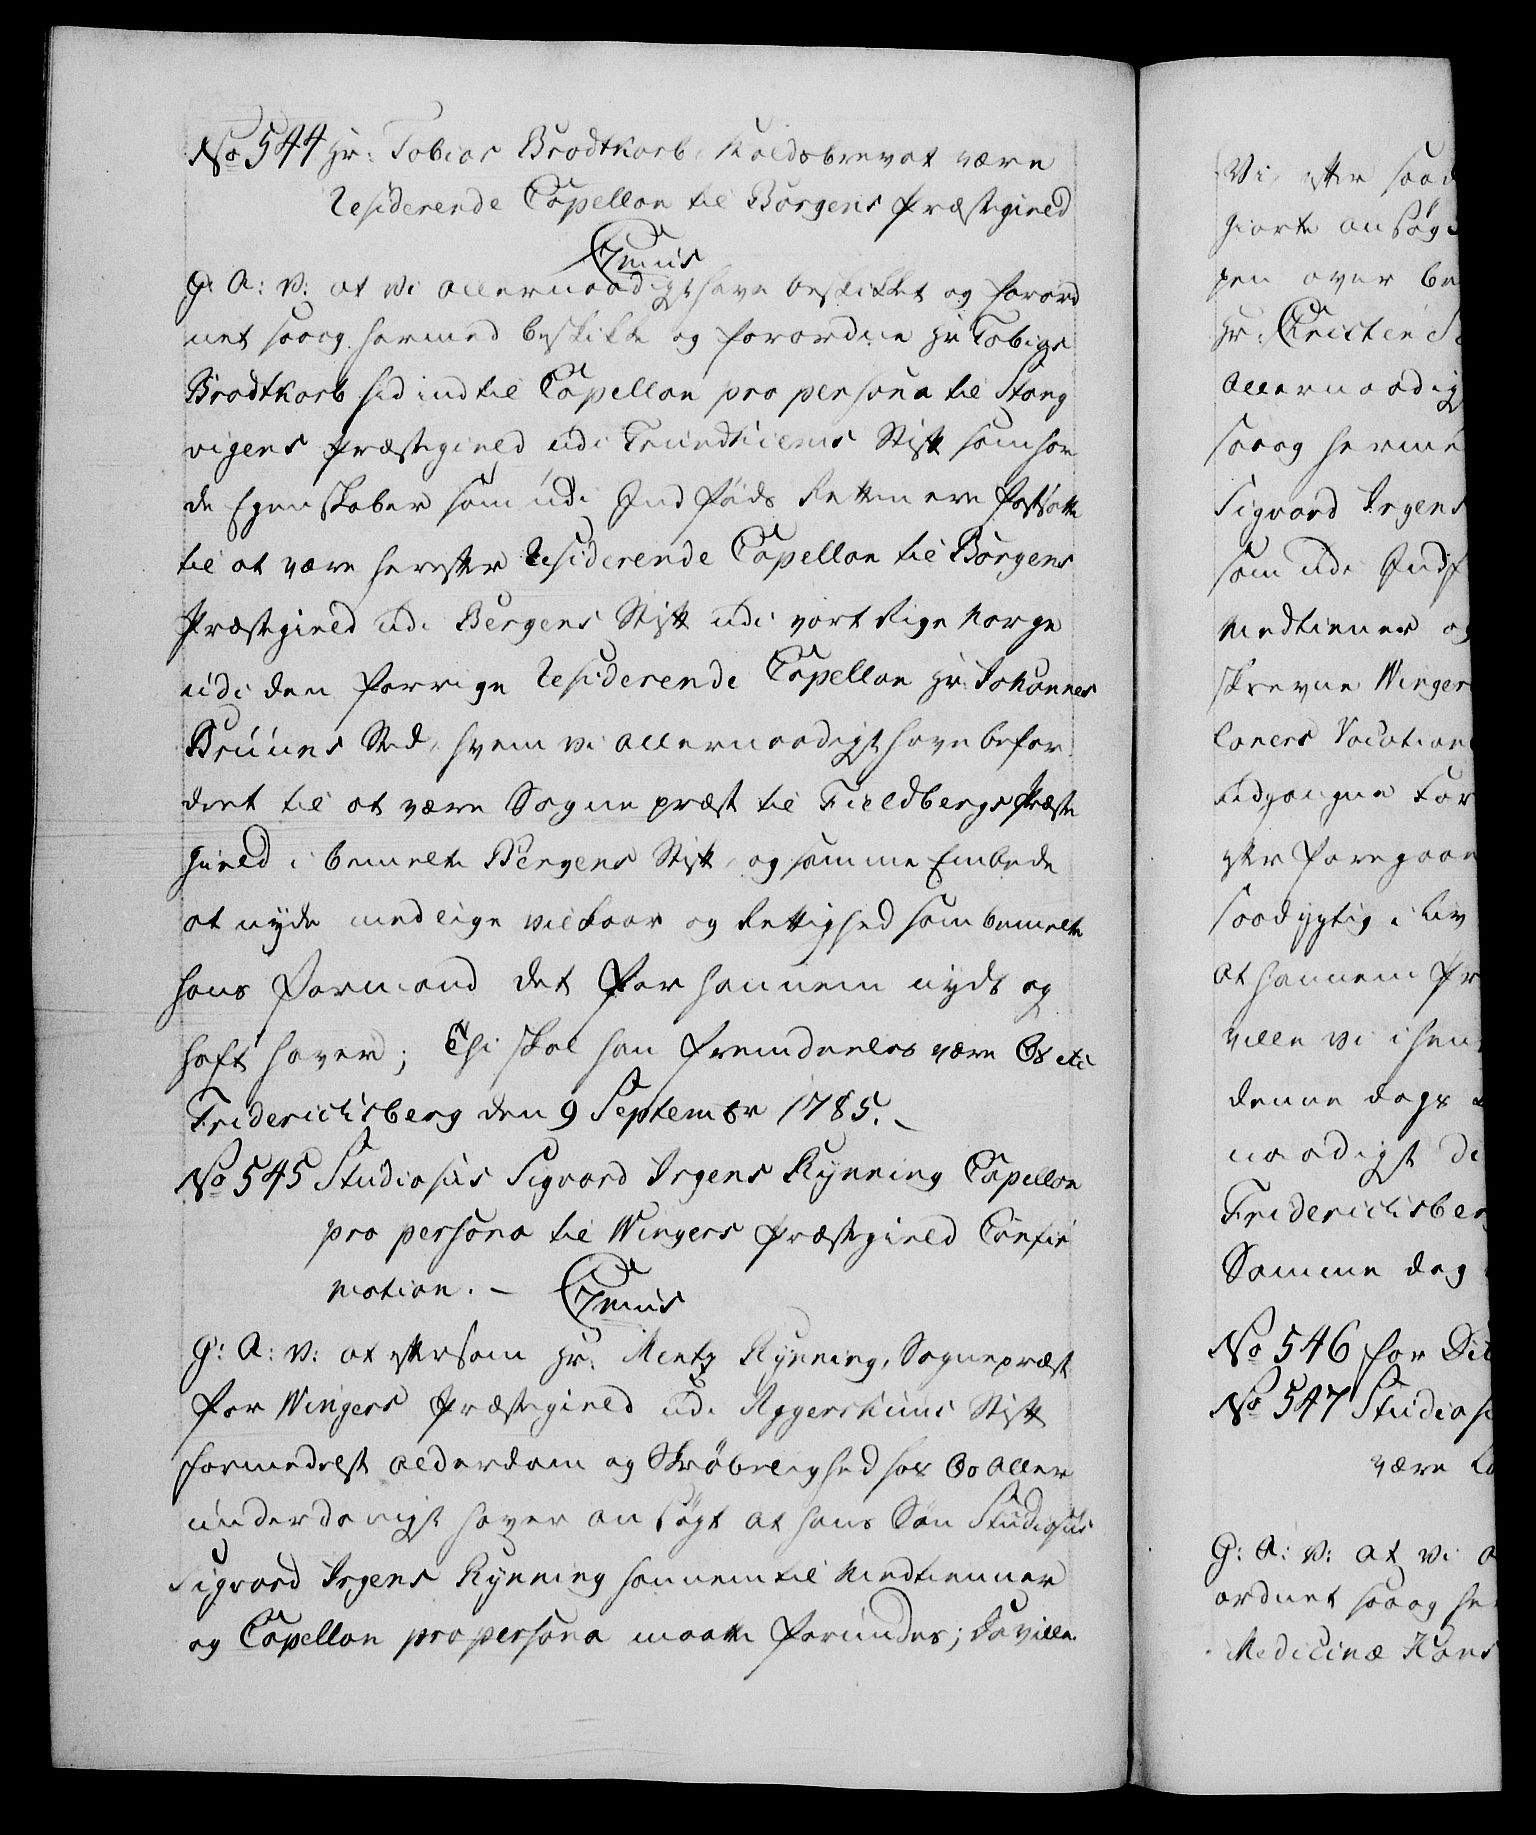 No 544 Hr: Tobias Brodtkorb, Kaldsbrevet være
Residerende Capellan til Borgens Præstegield
C 7mus
G: A: V: at Vi allernaadigst have beskikket og forord
net saaog hermed beskikke og forordne Hr Tobias
Brodtkorb hid indtil Capellan pro persona til Stang
vigens Præstegield udi Trundhiems Stift som har
de Egenskaber som udi Indføds Retten ere fastsatte
til at være herefter Residerende Capellan til Borgens
Præstegield udi Bergens Stift udi vort Rige Norge
udi den forrige Residerende Capellan Hr: Johannes
Bruuns Sted, hvem vi allernaadigst have befor
dret til at være Sogne præst til Fieldbergs Præste
gield i bemelte Bergens Stift, og samme Embede
at nyde med lige vilkaar og Rettighed som bemelte
hans Formand det for hannem nydt og
haft haver; Thi skal han fremdeeles være Os etc
Friderichsberg den 9 Septembr 1785. -
No 545 Studiosus Sigvard Irgens Rynning Capellan
pro persona til Wingers Præstegield Confir
mation. - C 7mus
G: A: V: at eftersom Hr: Mentz Rynning, Sognepræst
for Wingers Præstegield udi Aggershuus Stift
formedelst alderdom og Skrøbelighed hos Os aller
underdanigst haver ansøgt at hans Søn Studiosus
Sigvard Irgens Rynning hannem til Medtienner
og Capellan pro persona maatte forundes; Da ville
Vi, efter saad
giorte ansøg
pen over be
Hr: Christen S
allernaadig
saaog herme
Sigvard Irgens
som udi Indf
Medtiener og
skrevne Winger
laners Vocation
For
efter foregaae
saadygtig i Liv
at hannem Pr
ville vi i hen
denne dags
naadigst de
Friderichsber
Samme dag
No 546 for Dit
No 547 Studios
være
G: A: V: at vi a
ordnet saaog he
Medicinæ Hans